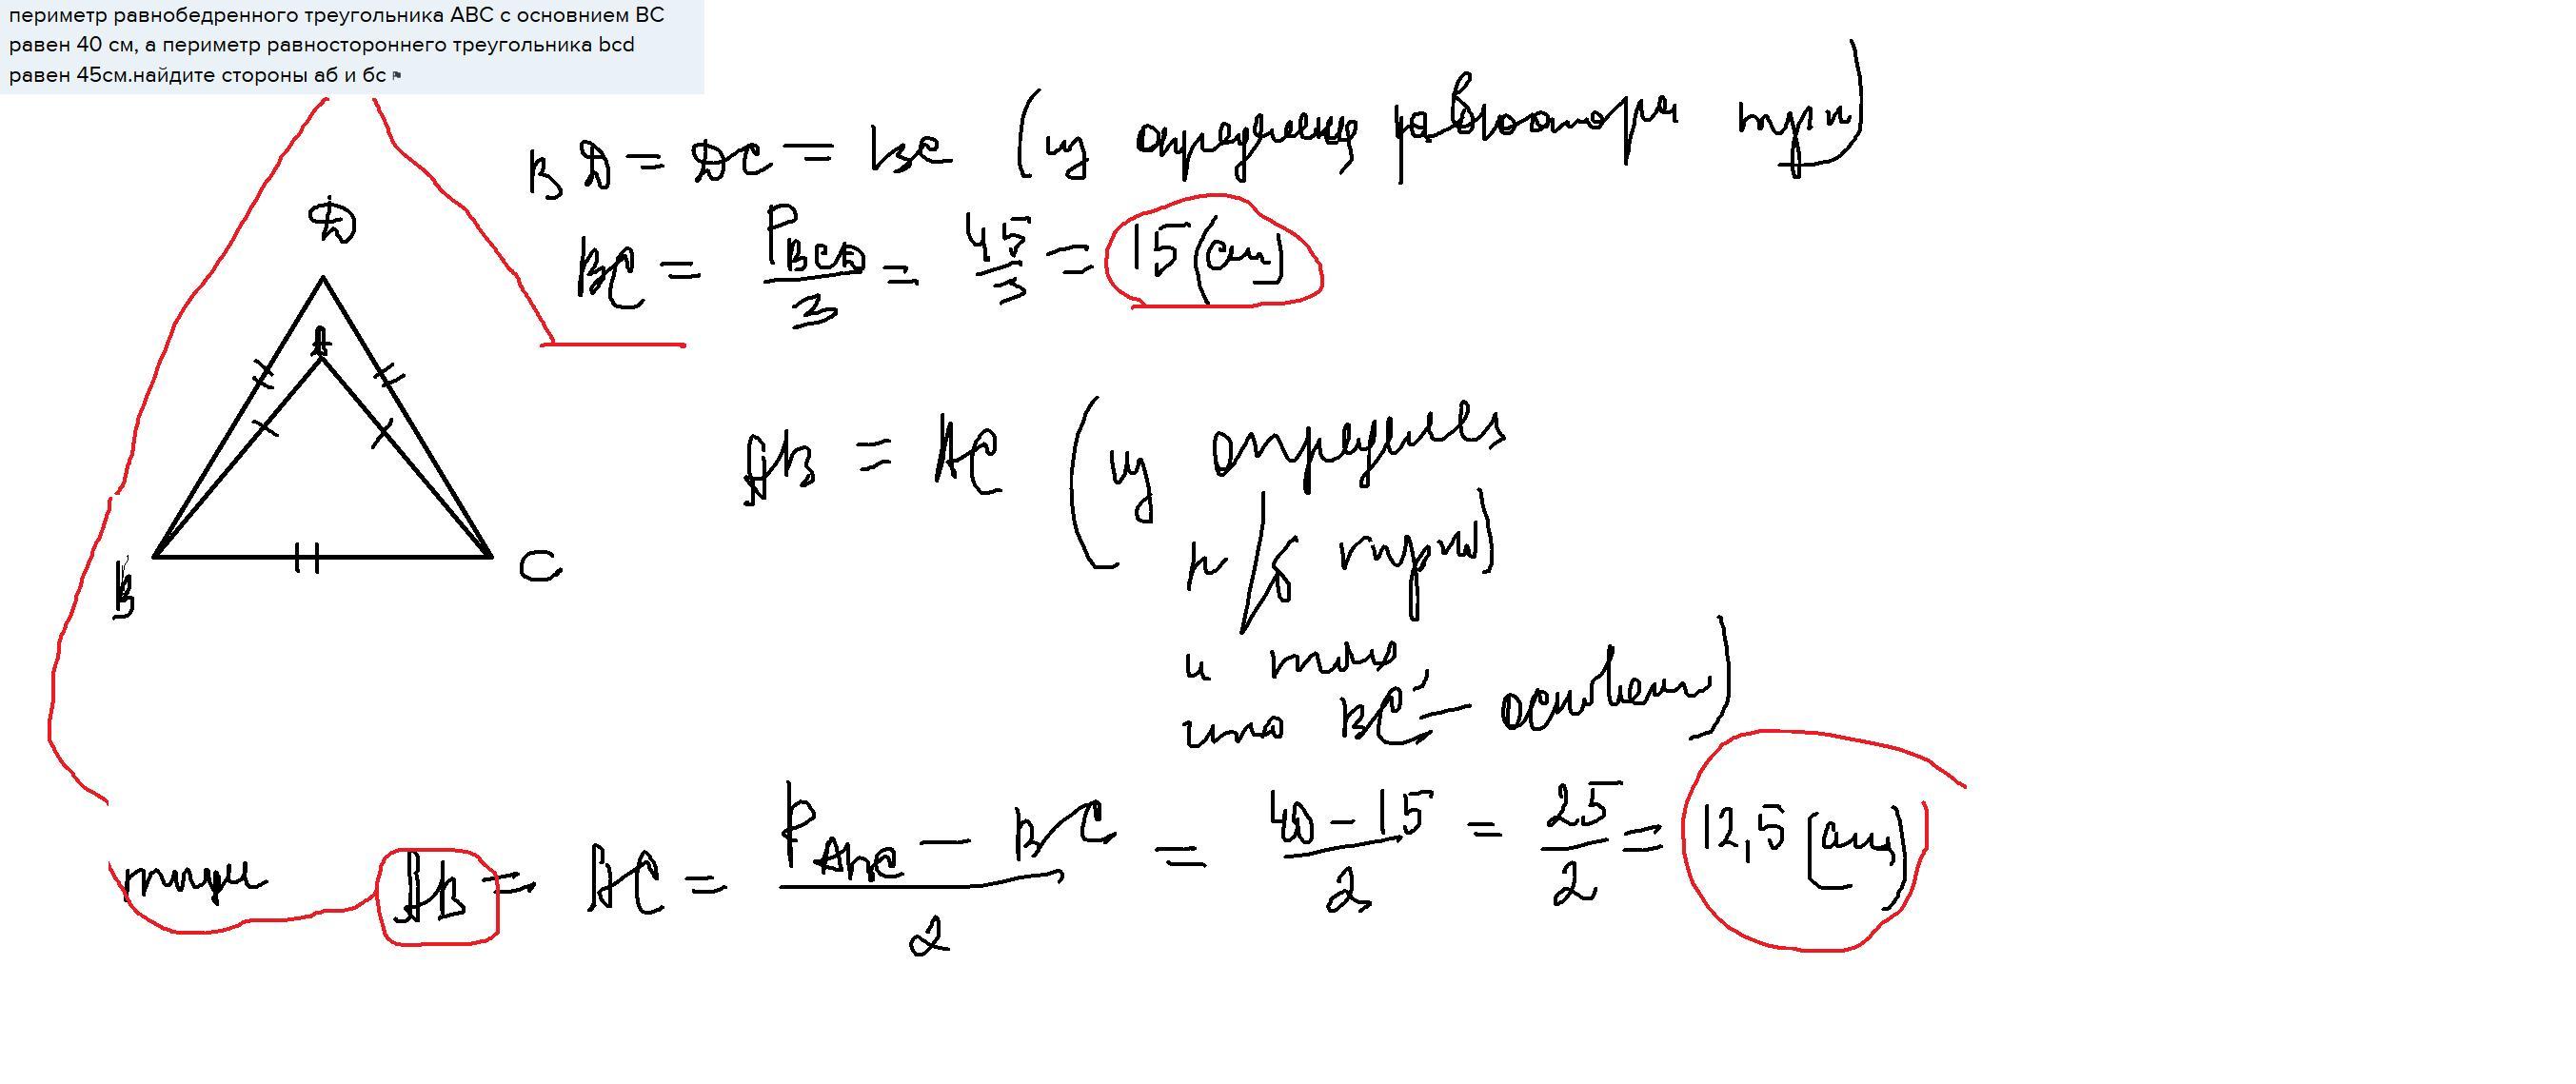 периметр равнобедренного треугольника ABC с основнием BC
равен 40 см, а периметр равностороннего треугольника bcd
равен 45см.найдите стороны аб и бс
BD = DC = BC (из определения равностор треуг)
BC = P_BCD/3 = 45/3 = 15 (см)
D
A
B
C
AB = AC (из определения
р/б треуг)
и того,
что BC - основание)
тогда AB = AC = (P_ABC - BC)/2 = (40-15)/2 = 25/2 = 12,5 (см)